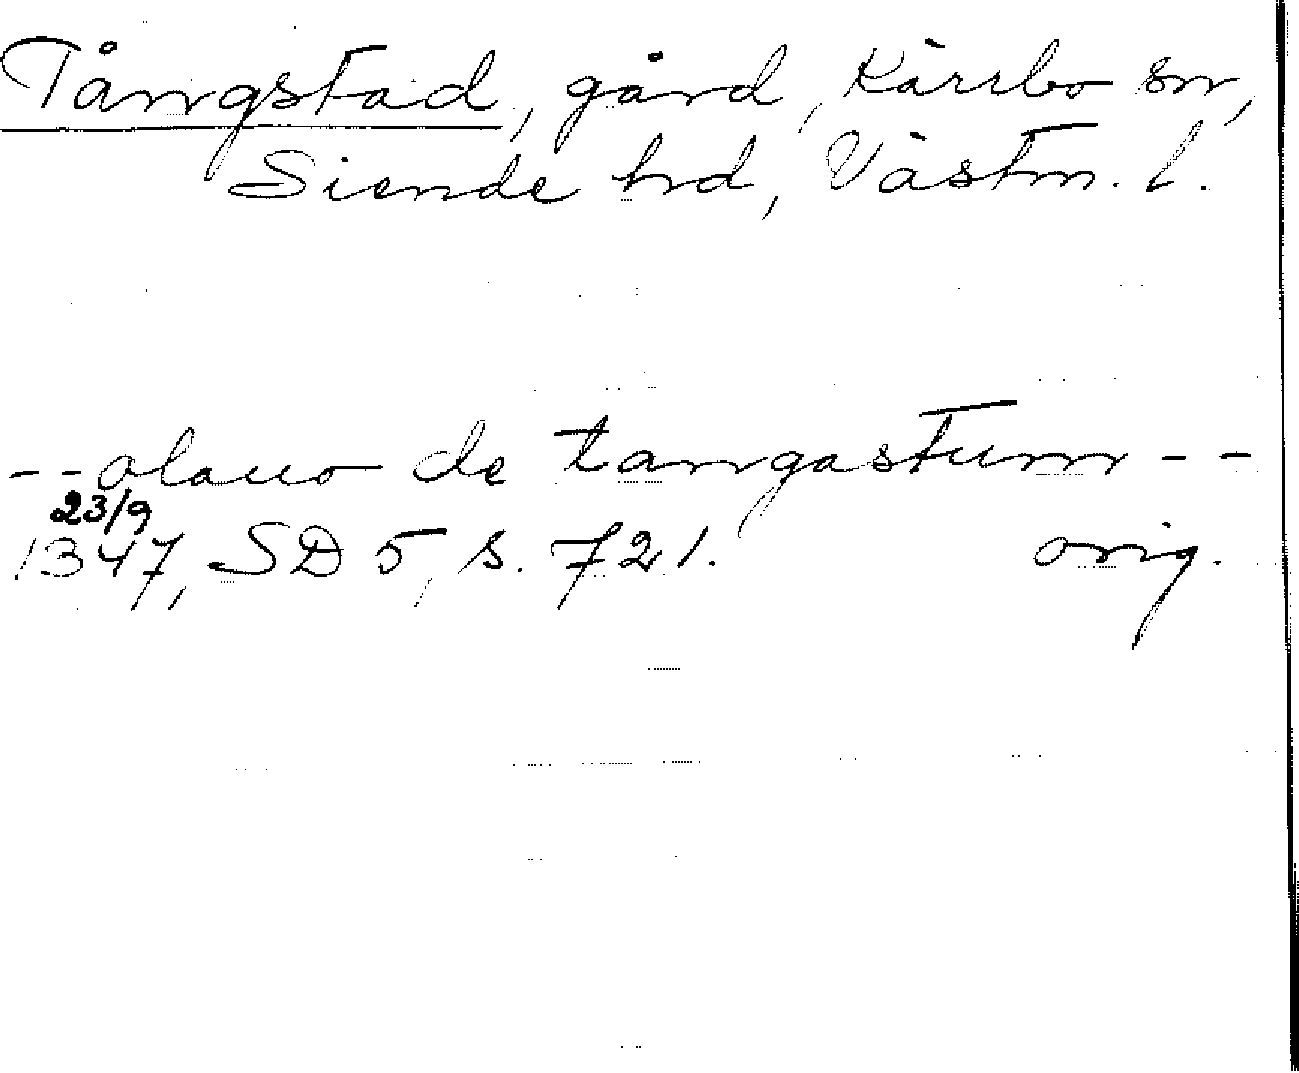 Tångstad, gård, Kärrbo sn,
Siende hd, Västm. l.
--olauo de tangastum--
23/9
1347, SD 5, s. 721. orig.